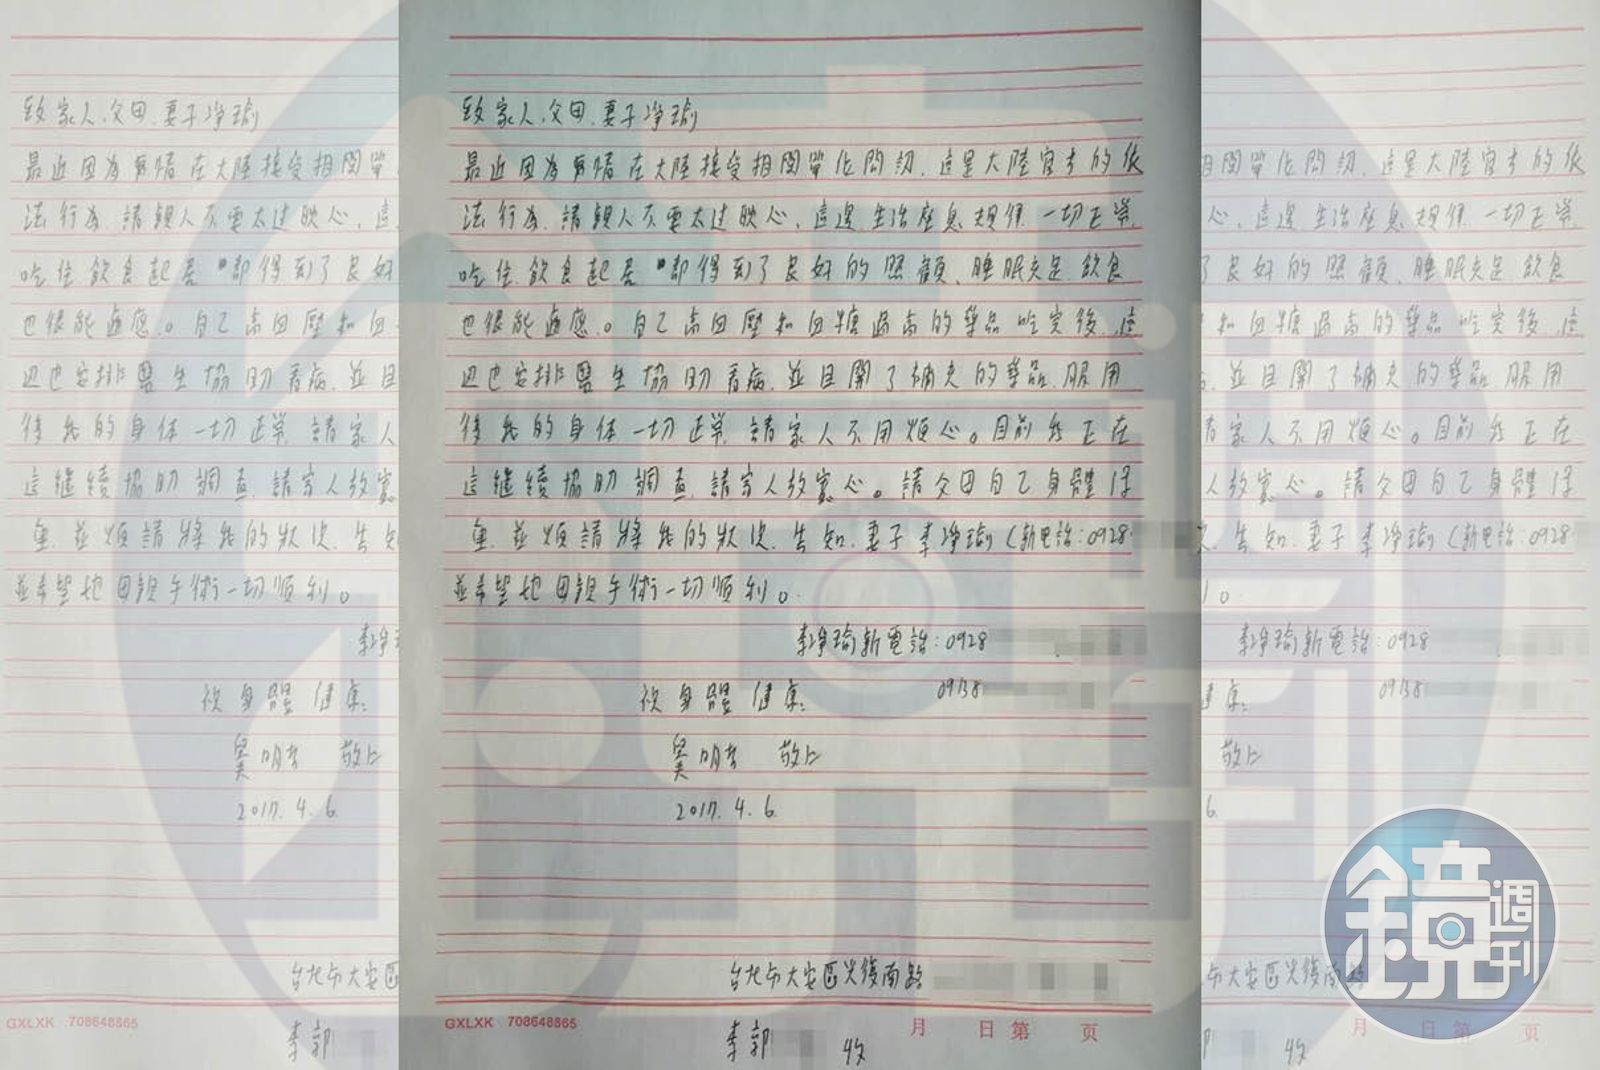 致家人、父母、妻子淨瑜
最近因為事情在大陸接受相關單位問訊，這是大陸官方的依
法行為，請親人不要太过映心，這邊生活座息規律一切正常，
吃住飲食起居都得到了良好的照顧、睡眠充足飲食
也很能適應。自己高血壓和血糖過高的藥品吃完後，這
边也安排醫生協助看病，並且開了補充的藥品，服用
後我的身体一切正常，請家人不用煩心。目前我正在
這繼續協助調查，請家人放寬心。請父母自己身體保
重，並煩請將我的狀況告知妻子李淨瑜（新電話：0928
並希望她母親手術一切順利。
李淨瑜新電話：0928
0938
祝身體健康：
吳明 敬上
2017. 4. 6.
台北市大安區光復南路
GXLXK 708648865
月 日 第 页
李郭 收
鏡週刊